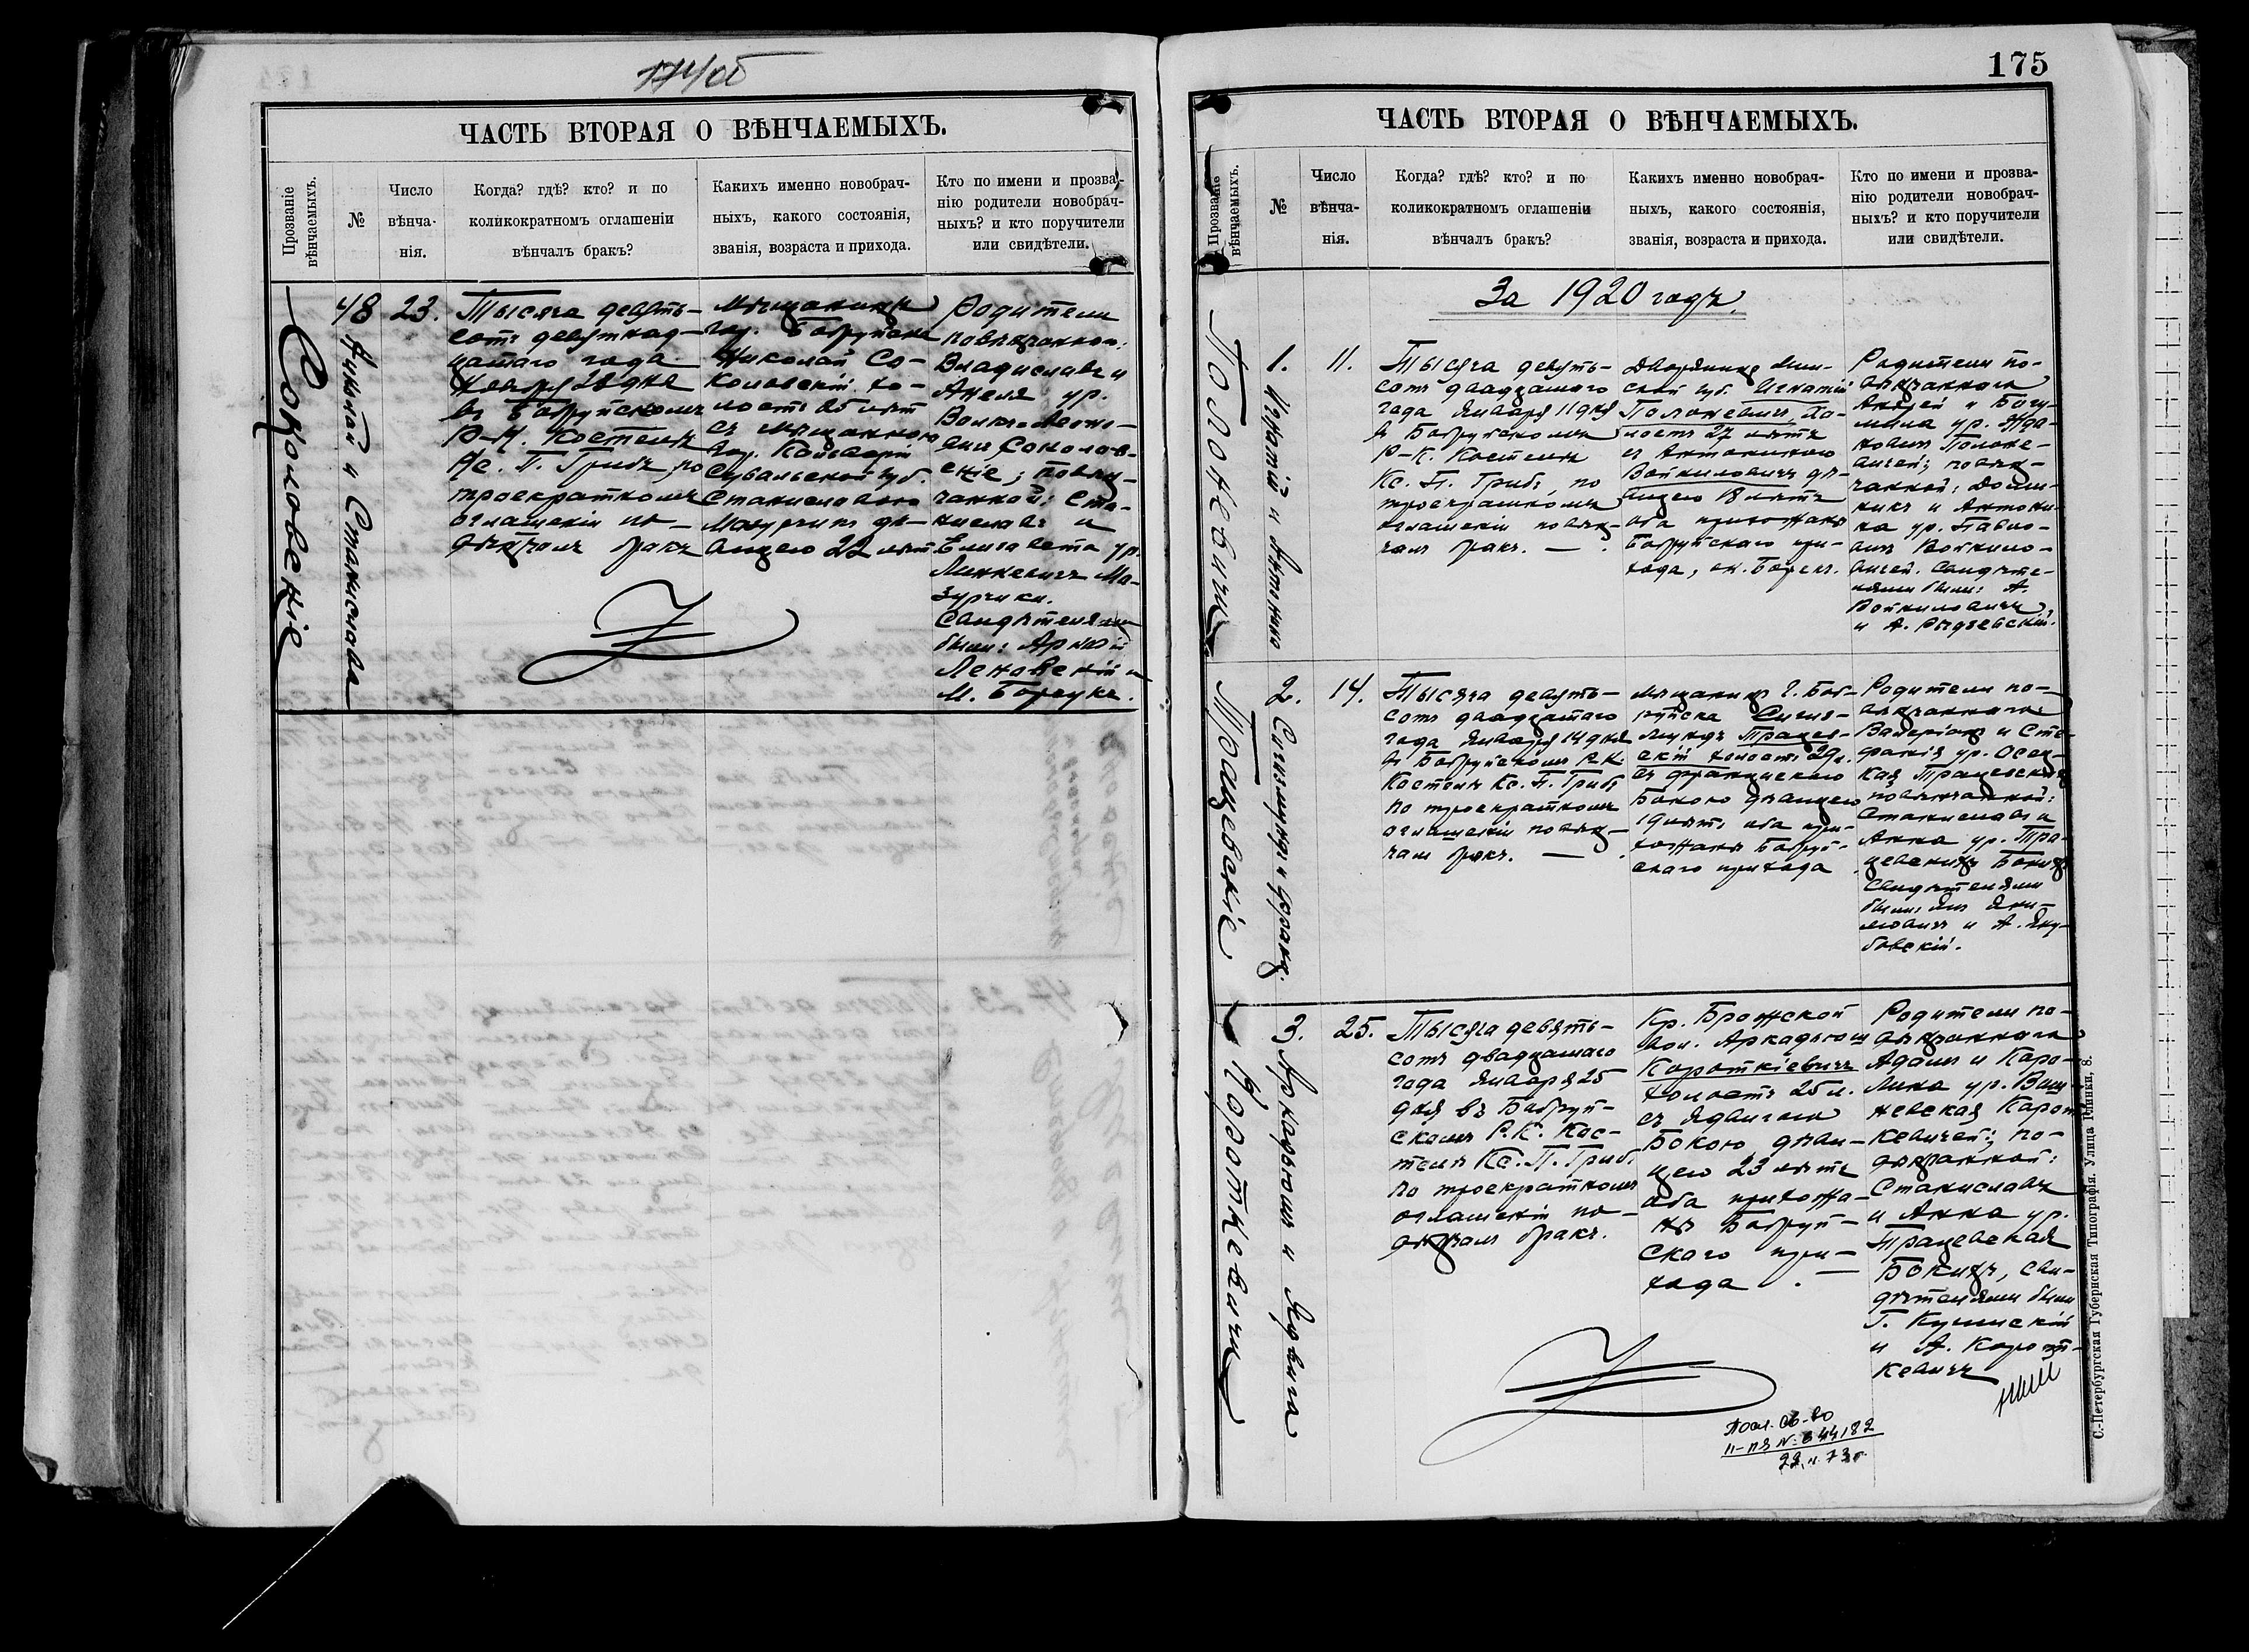 174/об
ЧАСТЬ ВТОРАЯ О ВѢНЧАЕМЫХЪ.
Прозваніе
вѣнчаемыхъ.
№
Число
вѣнча-
нія.
Когда? гдѣ? кто? и по
коликократномъ оглашеніи
вѣнчалъ бракъ?
Какихъ именно новобрач-
ныхъ, какого состоянія,
званія, возраста и прихода.
Кто по имени и прозва-
нію родители новобрач-
ныхъ? и кто поручители
или свидѣтели.
Соколовскіе
48
Николай и Станислава
23.
Тысяча девять-
сотъ девятнад-
цатаго года
дня
въ Бобруйскомъ
Р-К. Костелѣ
Кс. П. Грибъ, по
троекратномъ
оглашеніи по-
вѣнчалъ бракъ
Мѣщанинъ
гор. Бобруйска
Николай Со-
коловскій хо-
лостъ лѣт
съ мѣщанкою
гор. Кальварш
Сувальской губ.
Станиславою
Мазурчикъ дѣ-
вицею 22 лѣт
Родители
повѣнчаннаго:
Владиславъ и
Анеля ур.
Соколов-
скіе; повѣн-
чанной: Ста-
ниславъ и
Елизавета ур.
Минкевичъ Ма-
зурчики.
Свидѣтелями
были: Аркадій
Леновскій и
М. Борсукъ.
175
ЧАСТЬ ВТОРАЯ О ВѢНЧАЕМЫХЪ.
Прозваніе
вѣнчаемыхъ.
№
Число
вѣнча-
нія.
Когда? гдѣ? кто? и по
коликократномъ оглашеніи
вѣнчалъ бракъ?
Какихъ именно новобрач-
ныхъ, какого состоянія,
званія, возраста и прихода.
Кто по имени и прозва-
нію родители новобрач-
ныхъ? и кто поручители
или свидѣтели.
За 1920 годъ.
Полоневичи
1.
Игнатій и Антонина
11.
Тысяча девять-
сотъ двадцатаго
года Января 11 дня
въ Бобруйскомъ
Р-К. Костелѣ
Кс. П. Грибъ, по
троекратномъ
оглашеніи повѣн-
чалъ бракъ. —
Дворянинъ Мин-
ской губ. Игнатій
Полоневичъ, хо-
лостъ 27 лѣтъ
съ Антониною
Войниловичъ дѣ-
вицею 18 лѣтъ
оба прихожане
Бобруйскаго при-
хода, ок. Борекъ.
Родители по-
вѣнчаннаго
Андрей и Богу-
мила ур. Жда-
новичъ Полоне-
вичей; повѣн-
чанной: Доми-
никъ и Антони-
на ур. Павло-
вичъ Войнило-
вичей. Свидѣте-
лями были: А.
Войниловичъ
и А. Рыдзевскій.
Працевскіе
2.
Сигизмундъ и Франц.
14.
Тысяча девять-
сотъ двадцатаго
года Января 14 дня
въ Бобруйскомъ Р.К.
Костелѣ Кс. П. Грибъ
по троекратномъ
оглашеніи повѣн-
чалъ бракъ. —
Мѣщанинъ г. Боб-
руйска Сигиз-
мундъ Працев-
скій холостъ 29л.
съ Францискою
Бокою дѣвицею
19 лѣтъ оба при-
хожане Бобруй-
скаго прихода
Родители по-
вѣнчаннаго:
Валеріанъ и Сте-
фанія ур. Осец-
кая Працевскихъ
повѣнчанной:
Станиславъ и
Анна ур. Пра-
цевскихъ Бокихъ
Свидѣтелями
были: Янъ Яни-
ловичъ и А. Яку-
бовскій.
Короткевичи
3.
Аркадьюшъ и Ядвига
25.
Тысяча девять-
сотъ двадцатаго
года Января 25
дня въ Бобруй-
скомъ Р.К. Кос-
телѣ Кс. П. Грибъ
по троекратномъ
оглашеніи по-
вѣнчалъ бракъ.
Кр. Брожской
Вол. Аркадьюш
Короткіевичъ
холостъ 25 л.
съ Ядвигою
Бокою дѣви-
цею 23 лѣтъ
оба прихожа-
не Бобруй-
скаго при-
хода. —
Родители по-
вѣнчаннаго
Адамъ и Каро-
лина ур. Виш-
невская Корот-
кевичей; по-
вѣнчанной:
Станиславъ
и Анна ур.
Працевская
Бокихъ, сви-
дѣтелями были
Г. Кушинскій
и А. Корот-
кевичъ
Посл. св-во
II-ПЯ № 344182
С.-Петербургская Губернская Типографія. Улица Глинки, 8.